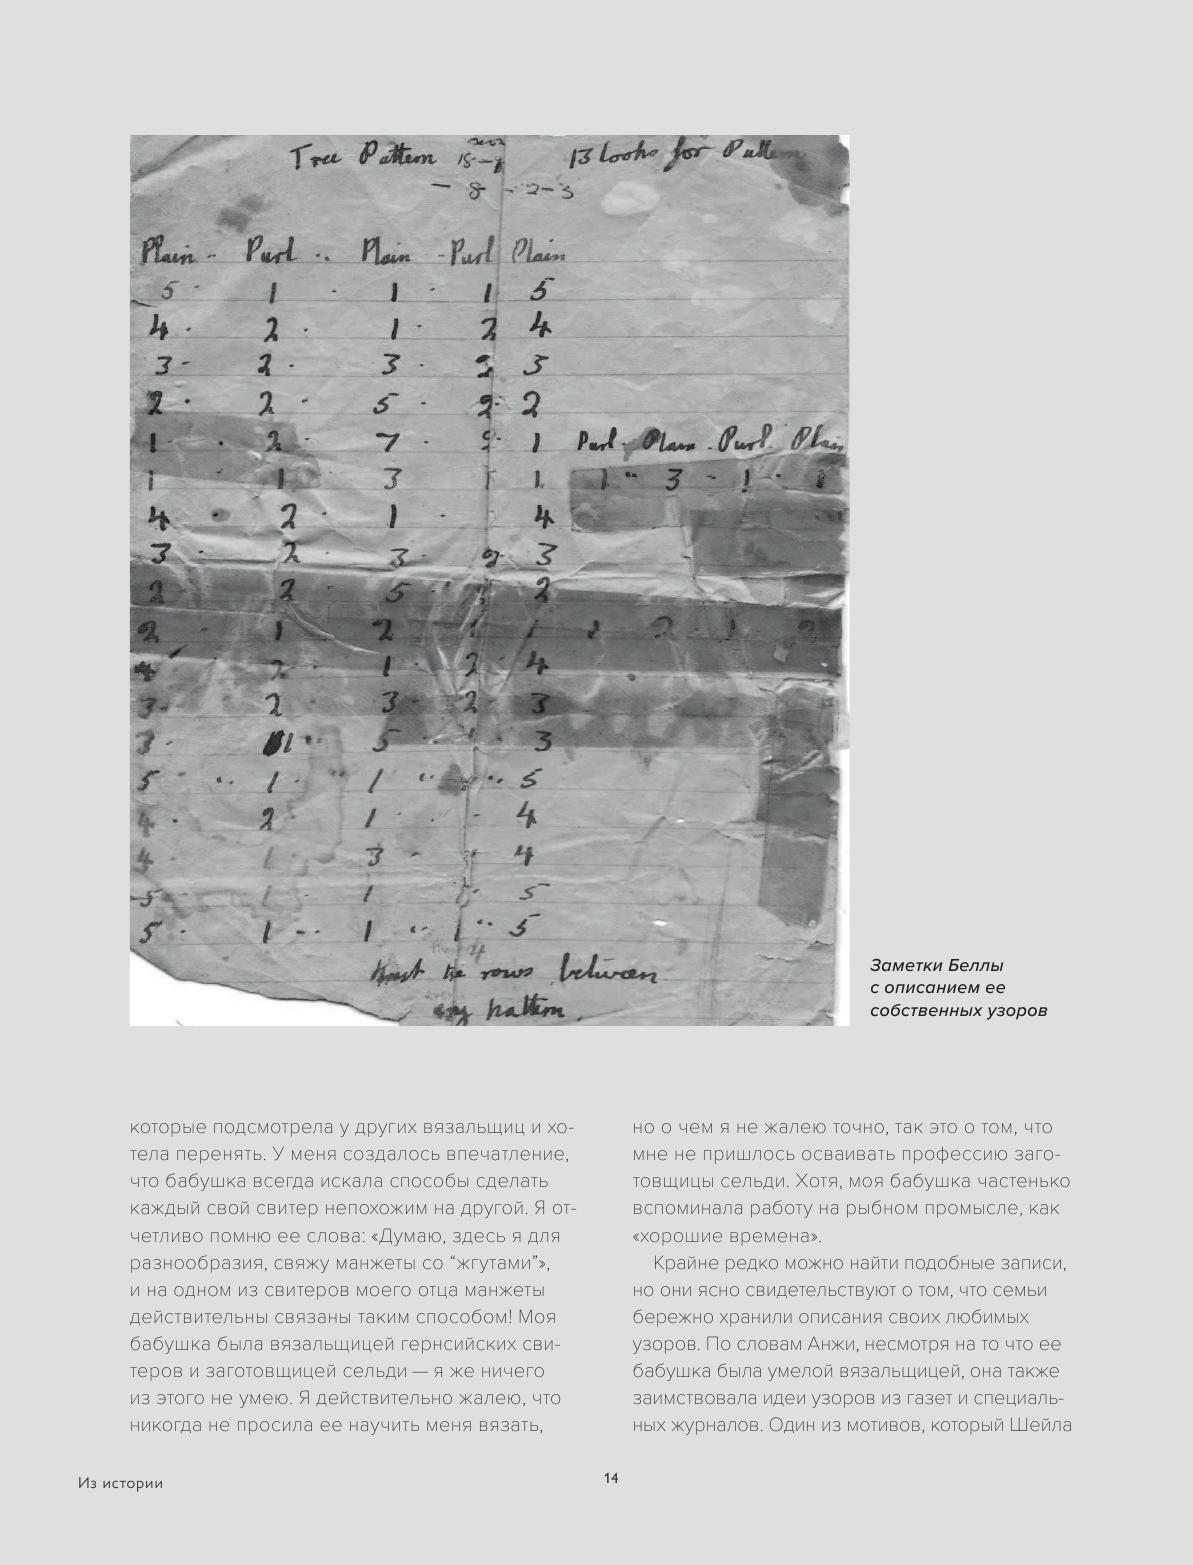 Tree Pattern 13 loohs for Pattern
- 8 - 2-3
Plain - Purl .. Plain - Purl Plain
5 - 1 - 1 - 1 5
4 - 2 - 1 - 2 4
3 - 2 - 3 - 2 3
2 - 2 - 5 - 2 2
1 - 2 - 7 - 2 1 Purl - Plain - Purl Plain
1 1 3 1 1 " 3 - 1 - 1
4 - 2 - 1 - 4
3 - 2 - 3 - 2 3
2 2 - 5 2
2 - 1 2 1 1 1 2 - 1 2
4 2 - 1 - 2 - 4
3 - 2 3 - 2 - 3
3 - 1 " 5 - 1 3
5 " 1 - " 1 " " 5
4 - 2 - 1 - - 4
4 1 - 3 - 4
5 1 - 1 5
5 - 1 -- 1 " 1 " 5
rows between
any pattern.
Заметки Беллы
с описанием ее
собственных узоров
которые подсмотрела у других вязальщиц и хо-
тела перенять. У меня создалось впечатление,
что бабушка всегда искала способы сделать
каждый свой свитер непохожим на другой. Я от-
четливо помню ее слова: «Думаю, здесь я для
разнообразия, свяжу манжеты со “жгутами”»,
и на одном из свитеров моего отца манжеты
действительны связаны таким способом! Моя
бабушка была вязальщицей гернсийских сви-
теров и заготовщицей сельди — я же ничего
из этого не умею. Я действительно жалею, что
никогда не просила ее научить меня вязать,
но о чем я не жалею точно, так это о том, что
мне не пришлось осваивать профессию заго-
товщицы сельди. Хотя, моя бабушка частенько
вспоминала работу на рыбном промысле, как
«хорошие времена».
Крайне редко можно найти подобные записи,
но они ясно свидетельствуют о том, что семьи
бережно хранили описания своих любимых
узоров. По словам Анжи, несмотря на то что ее
бабушка была умелой вязальщицей, она также
заимствовала идеи узоров из газет и специаль-
ных журналов. Один из мотивов, который Шейла
Из истории
14